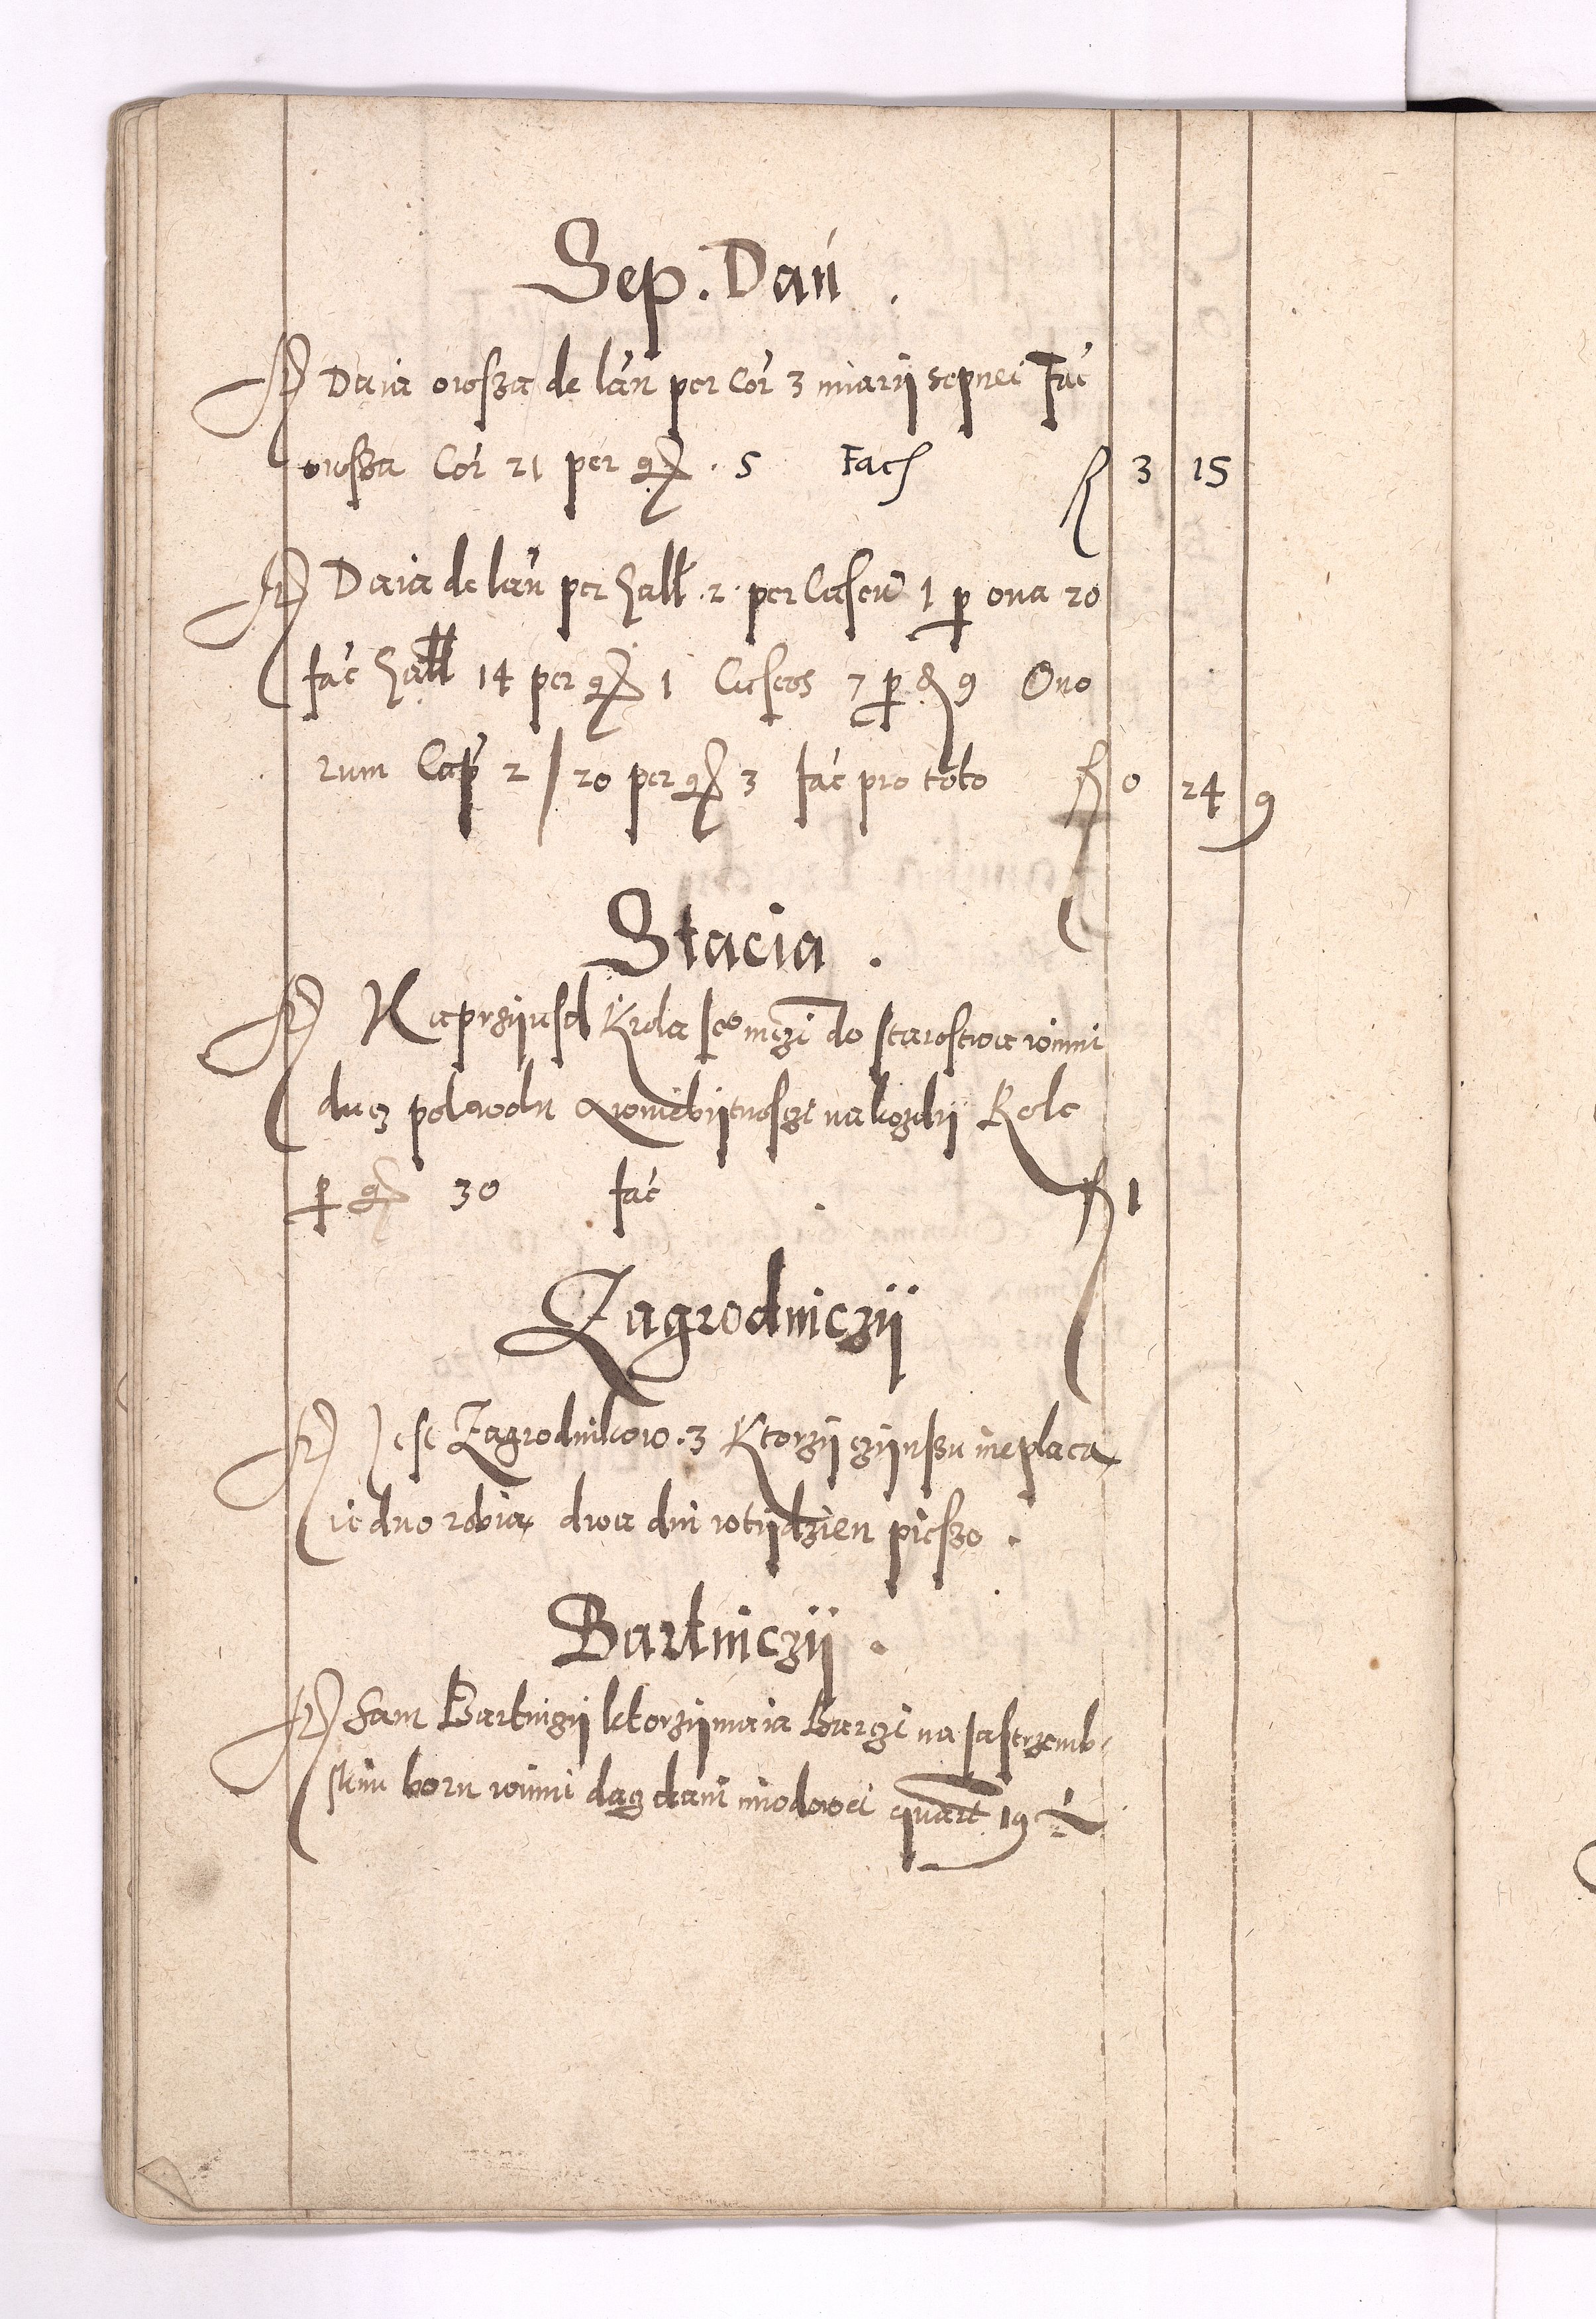 Sep. Dań.
Daia owsza de láń per Cor 3 miarÿ sepnei Fać
owsza Cor 21 per gr. 5 Fac f 3 15
Daia de láń per gall. 2. per Caseū 1 p ova 20
fać gall 14 per gr 1 Caseos 7 p d 9 Ovo
rum Cap 2 / 20 per gr 3 fać pro toto f 0 24 9
Stacia.
Na przÿiasd Krola Jeo mczi do starostwa winni
dacz polwodu wniebÿtnosczi na kozdÿ Role
p gr 30 fać f 1
ZagrodniczÿÍ
Jest Zagrodnikow. 3 Ktorzÿ czÿnszu nie placa
iedno robia dwa dni w tÿdzien pieszo.
Bartniczÿ.
Sam Bartniczÿ ktorzÿ maia Barczi na Jastrzemb-
skim boru winni dacz dani miodowei quart 19